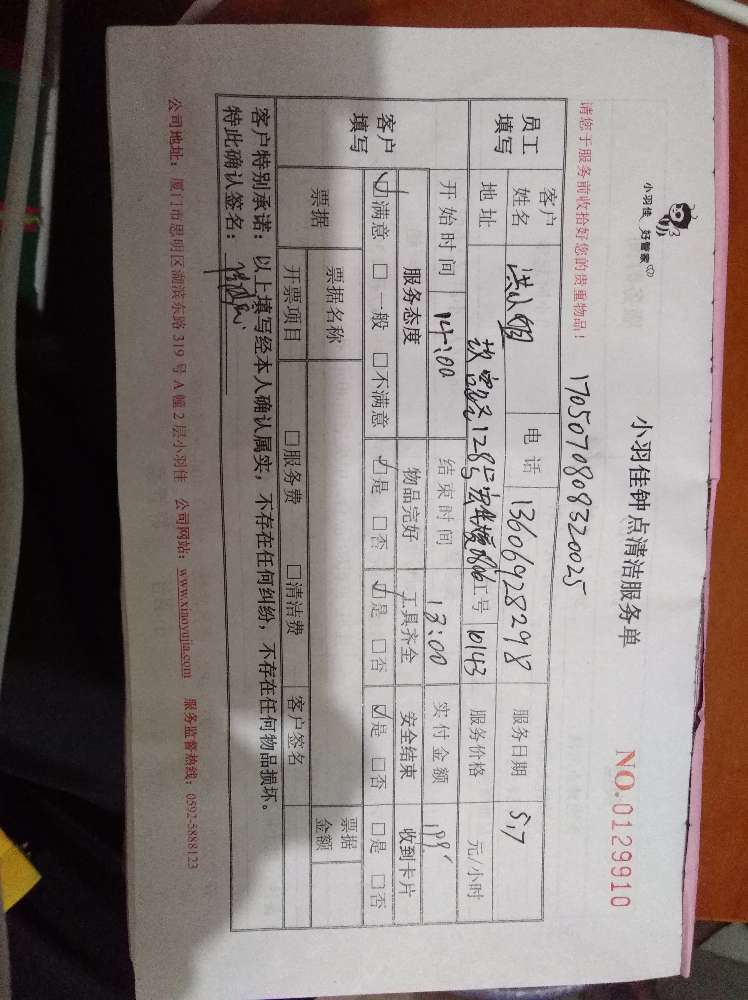 小羽佳 好管家
小羽佳钟点清洁服务单
NO.0129910
请您于服务前收拾好您的贵重物品!
1705070808320025
员工填写
客户姓名 洪小姐 电话 13606928298 服务日期 5.7
地址 128号 1806 工号 10143 服务价格 元/小时
开始时间 14:00 结束时间 18:00 实付金额 199
客户填写
服务态度 物品完好 工具齐全 安全结束 收到卡片
☑满意 □一般 □不满意 ☑是 □否 ☑是 □否 ☑是 □否 □是 □否
票据
票据名称 票据金额
开票项目 □服务费 □清洁费 客户签名
客户特别承诺:以上填写经本人确认属实,不存在任何纠纷,不存在任何物品损坏。
特此确认签名:
公司地址:厦门市思明区湖滨东路 319 号 A 幢 2 层小羽佳 公司网站:www.xiaoyujia.com 服务监督热线:0592-5888123